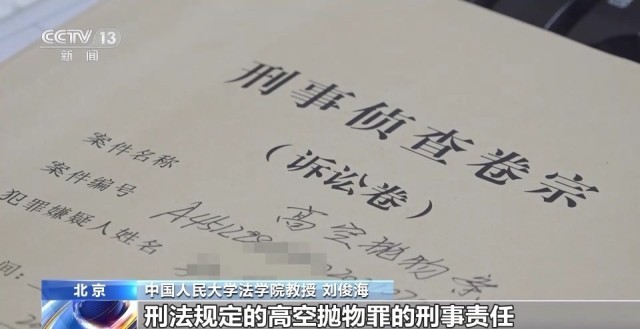 CCTV 13
新闻
刑事侦查卷宗
（诉讼卷）
案件名称 高空抛物案
案件编号
犯罪嫌疑人姓名
北京 中国人民大学法学院教授 刘俊海
刑法规定的高空抛物罪的刑事责任